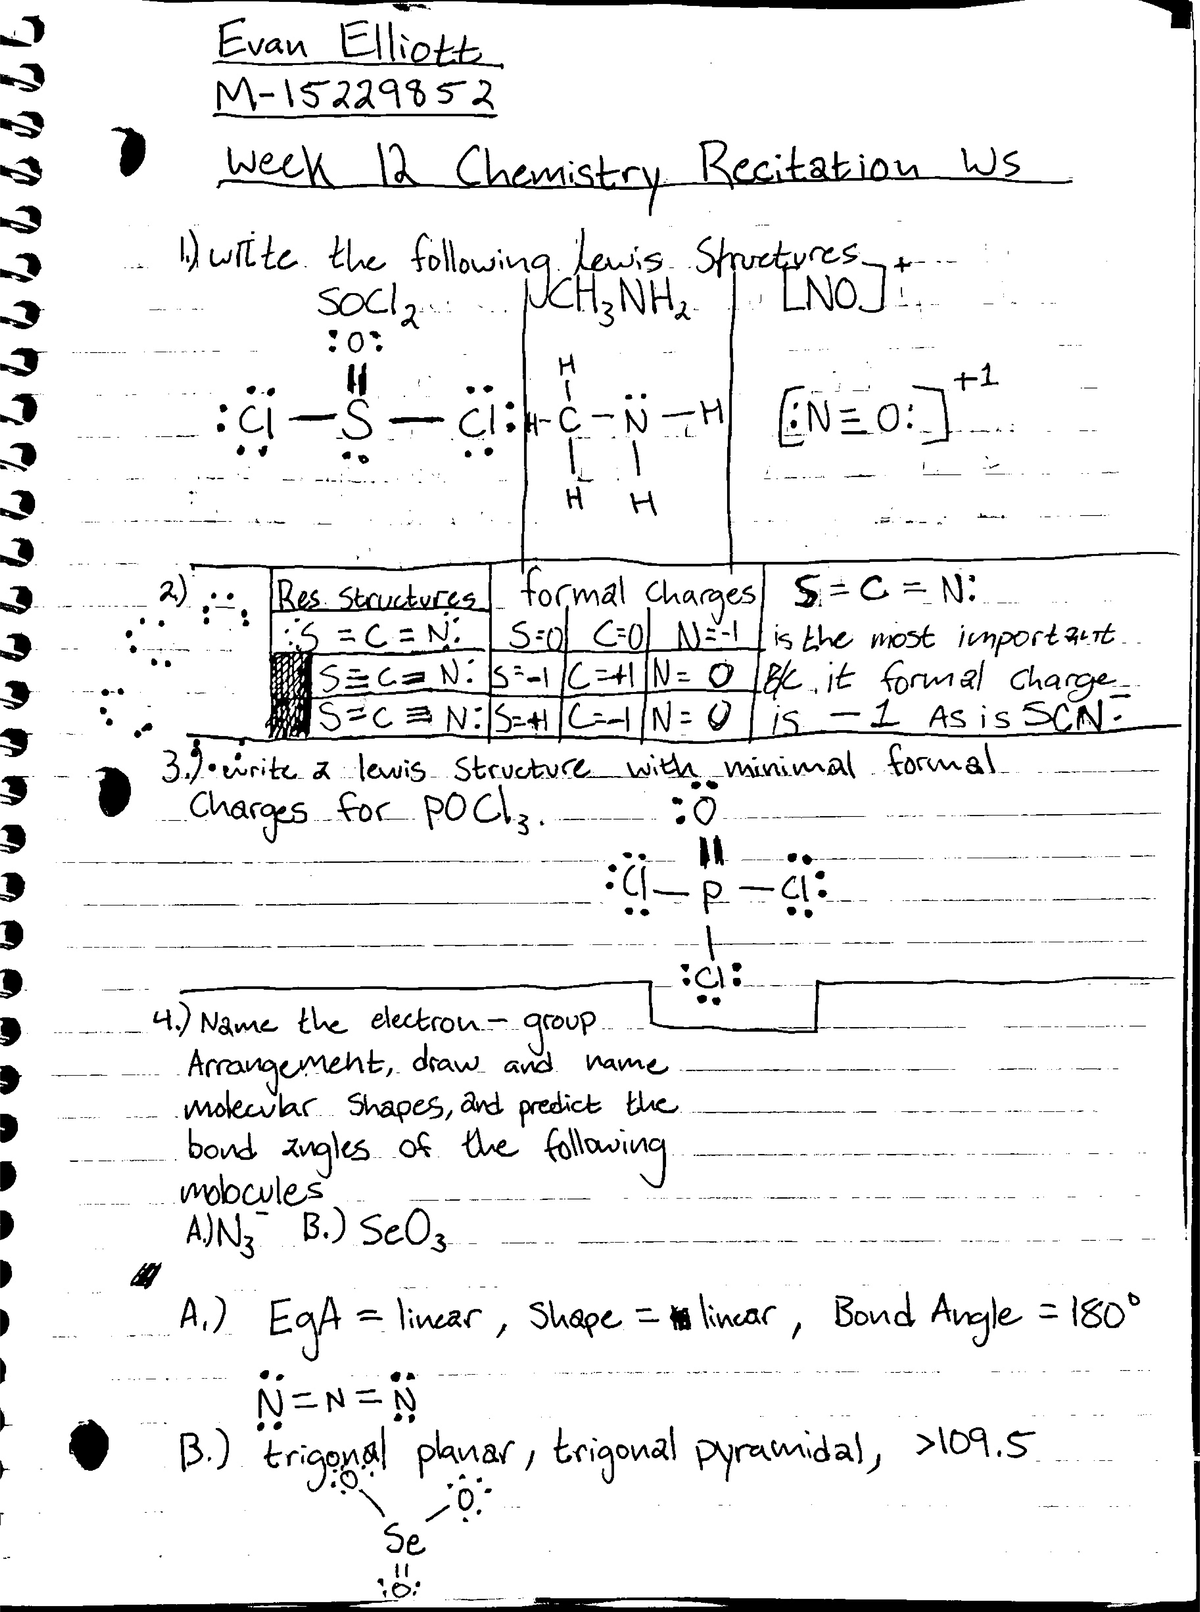 Evan Elliott
M-15229852
Week 12 Chemistry Recitation WS
1.) write the following Lewis Structures
SOCl2 CH3NH2 [NO]+
:O:
||
:Cl — S — Cl:
H
|
H-C-N-H
| |
H H
[:N≡O:]+1
2) Res. Structures formal Charges S=C=N:
:S=C=N: S=0 C=0 N=-1 is the most important
S≡C=N: S=-1 C=+1 N=0 B/c it formal charge
S=C≡N: S=+1 C=-1 N=0 is -1 As is SCN-
3.) write a lewis Structure with minimal formal
Charges for POCl3.
:O
||
:Cl — P — Cl:
|
:Cl:
4.) Name the electron-group
Arrangement, draw and name
molecular Shapes, and predict the
bond angles of the following
molocules
A.) N3- B.) SeO3
A.) EgA = linear, Shape = linear, Bond Angle = 180°
N=N=N
B.) trigonal planar, trigonal pyramidal, >109.5
:O: O:
Se
||
:O: